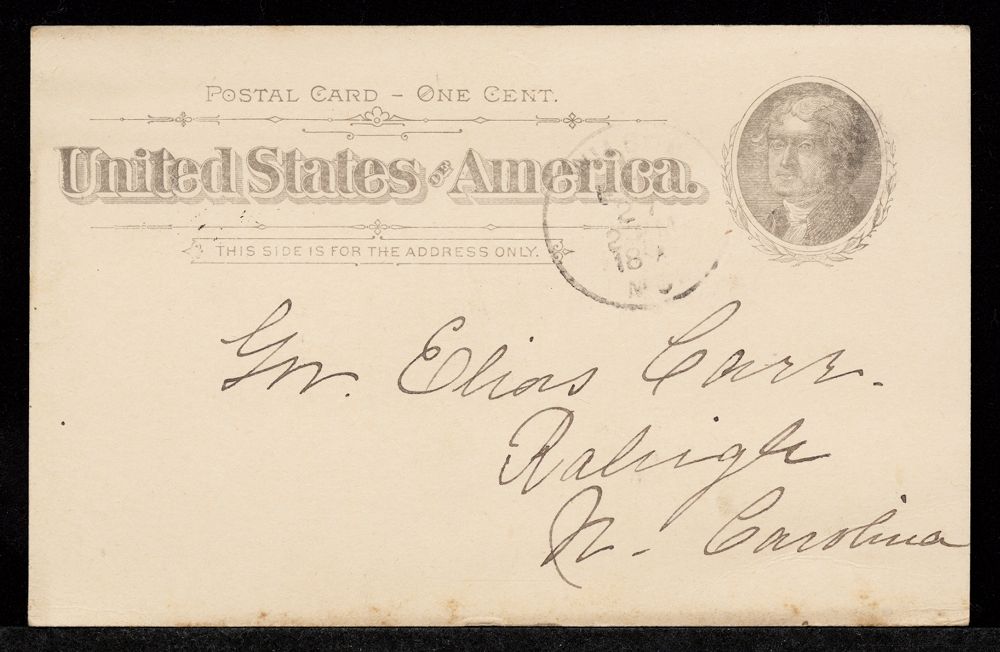 POSTAL CARD – ONE CENT.
United States OF America.
THIS SIDE IS FOR THE ADDRESS ONLY.
Gov. Elias Carr.
Raleigh
N. Carolina